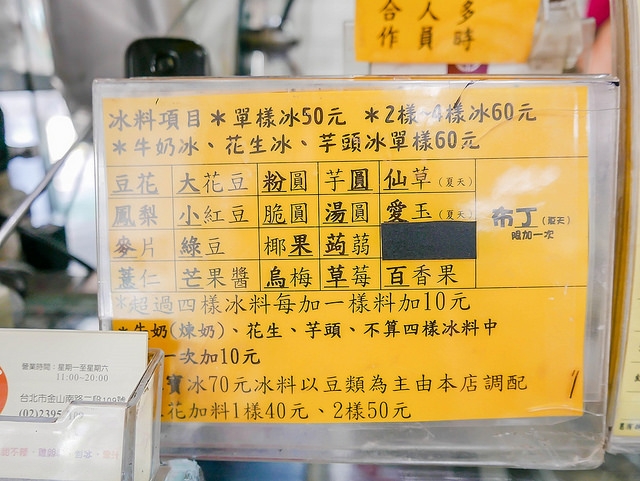 合人多
作員時
冰料項目＊單樣冰50元 ＊2樣~4樣冰60元
＊牛奶冰、花生冰、芋頭冰單樣60元
豆花 大花豆 粉圓 芋圓 仙草(夏天)
鳳梨 小紅豆 脆圓 湯圓 愛玉(夏天) 布丁(夏天)
限加一次
麥片 綠豆 椰果 蒟蒻
薏仁 芒果醬 烏梅 草莓 百香果
＊超過四樣冰料每加一樣料加10元
＊牛奶(煉奶)、花生、芋頭、不算四樣冰料中
一次加10元
寶冰70元冰料以豆類為主由本店調配
花加料1樣40元、2樣50元
營業時間：星期一至星期六
11:00~20:00
台北市金山南路二段109號
(02)2395